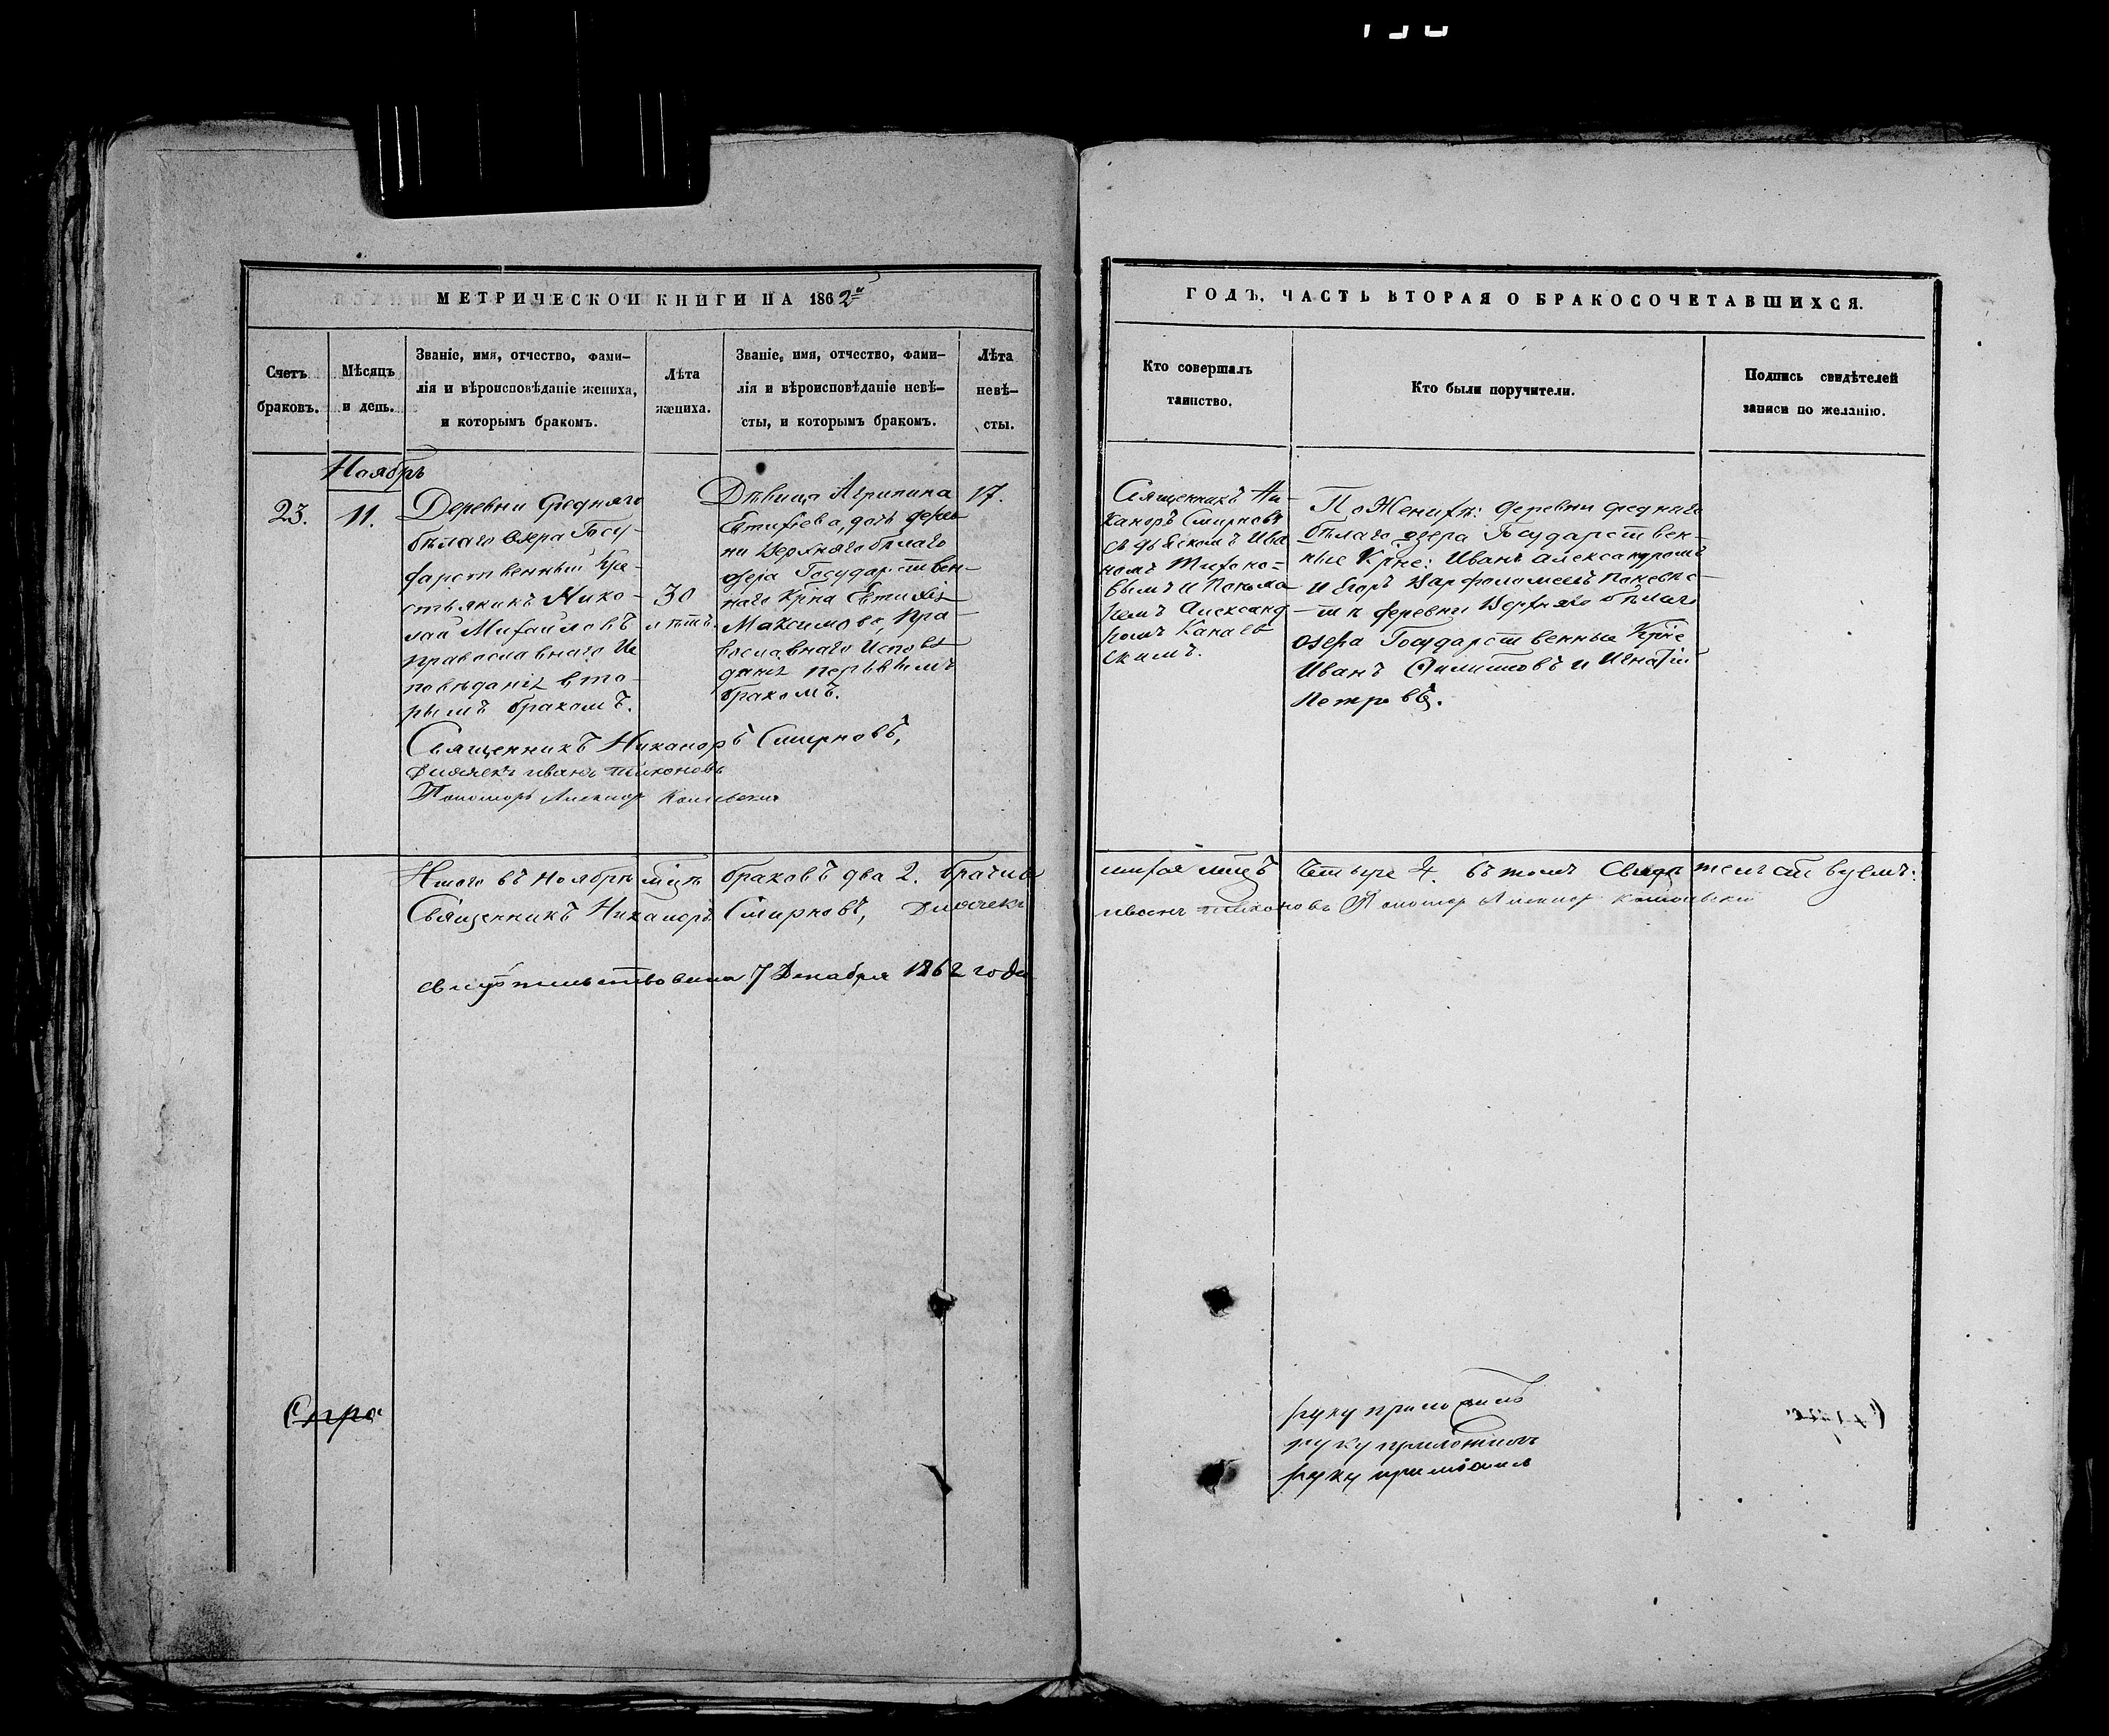 МЕТРИЧЕСКОЙ КНИГИ НА 1862й
Счетъ
браковъ.
Мѣсяцъ
и день.
Званіе, имя, отчество, фами-
лія и вѣроисповѣданіе жениха,
и которымъ бракомъ.
Лѣта
жениха.
Званіе, имя, отчество, фами-
лія и вѣроисповѣданіе невѣ-
сты, и которымъ бракомъ.
Лѣта
невѣ-
сты.
Ноябрь
23.
11.
Деревни Средняго
бѣлаго Озера Госу-
дарственный Кре-
стьянинъ Нико-
лай Михайловъ
православнаго Ис
повѣданія вто-
рымъ бракомъ.
30
лѣтъ.
Дѣвица Агрипина
Евтифіева, дочь дерев
ни Верхняго бѣлаго
озера Государствен-
наго Крѣна Евтифія
Максимова, Пра
вославнаго Исповѣ
данія первымъ
бракомъ.
17.
Священникъ Никаноръ Смирновъ,
Дьячекъ Иванъ Тихоновъ
Пономарь Александръ
Итого въ Ноябрѣ мцѣ браковъ два 2. брачив
Священникъ Никаноръ Смирновъ, Дьячекъ
свидѣтельствована 7 Декабря 1862 года
Спра
ГОДЪ, ЧАСТЬ ВТОРАЯ О БРАКОСОЧЕТАВШИХСЯ.
Кто совершалъ
таинство.
Кто были поручители.
Подпись свидѣтелей
записи по желанію.
Священникъ Ни-
каноръ Смирновъ
съ дьячкомъ Ива
номъ Тихоно-
вымъ и Понома
ремъ Александ
ромъ Канаев
скимъ.
По Женихѣ: деревни средняго
бѣлаго озера Государствен-
ные Крне: Иванъ Александровъ
и Егоръ Варфоломеевъ по невѣс-
тѣ деревни Верхняго бѣлаго
озера Государственные Крне
Иванъ Филиповъ и Игнатій
Петровъ.
шихся лицъ четыре 4. въ томъ Свидѣтельствуемъ:
Иванъ Тихоновъ Пономарь Александръ
руку приложилъ
руку приложилъ
руку приложилъ